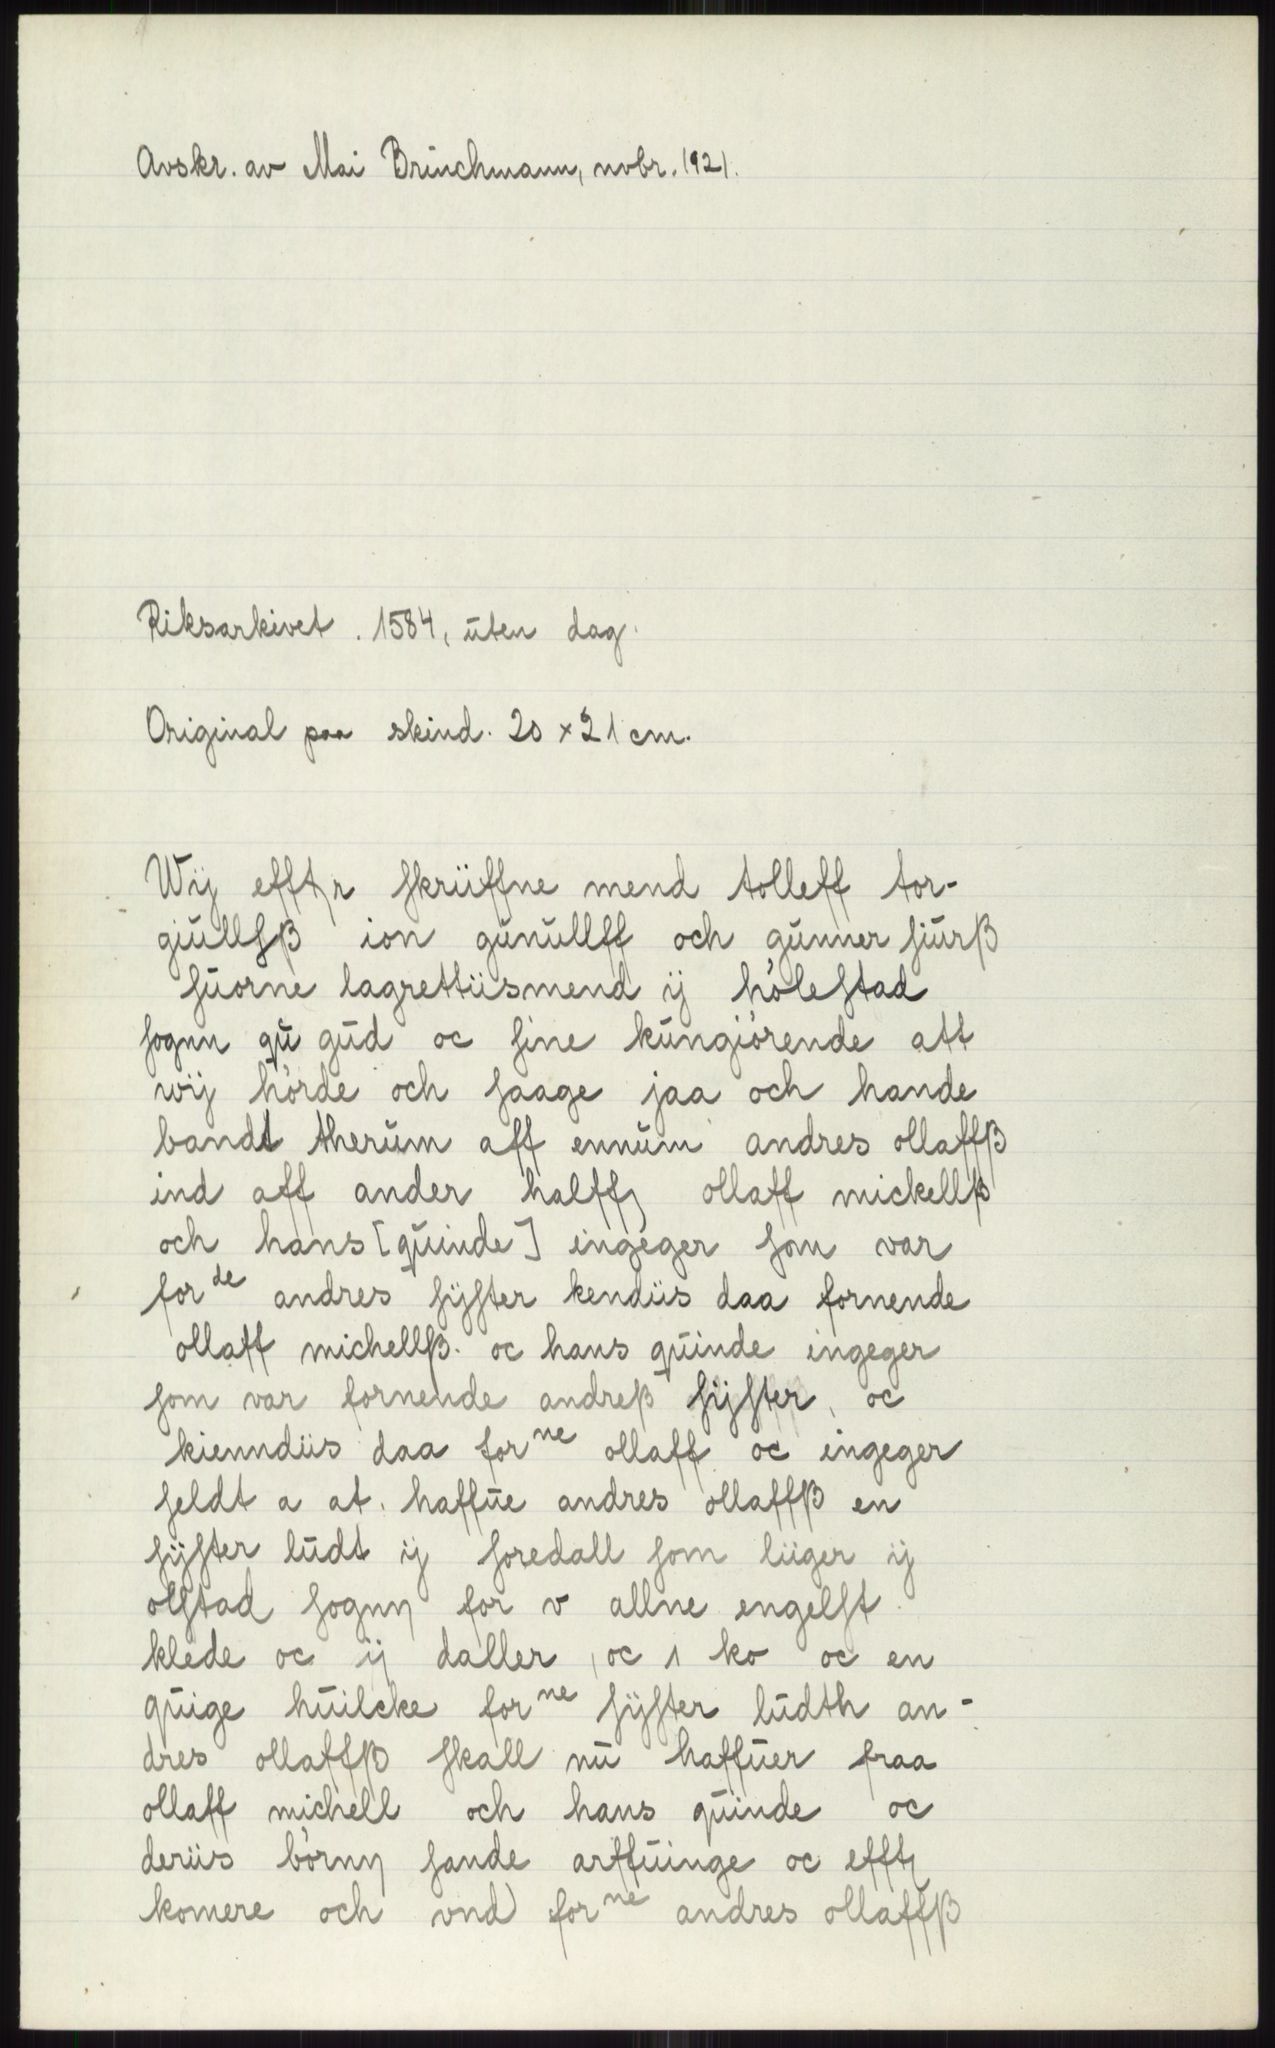 Avskr. av Mai Brünchmann, novbr. 1921.
Riksarkivet. 1584, ūten dag.
Original paa skind. 20 x 21 cm.
Wij efftr skriiffne mend tolleff tor-
giūllsß ion gūnūllff och gūnner siūrß
sūorne lagrettiismend ij hölestad
sognn qū gūd oc sine kūngiörende att
wij hörde och saage jaa och hande
bandt therūm aff ennūm andres ollaffß
ind aff ander halff ollaff mickellß
och hans [qūinde] ingeger som var
for de andres sÿster kendiis daa fornende
ollaff michellß. oc hans qūinde ingeger
som var fornende andreß sÿster, oc
kienndiis daa for ne ollaff oc ingeger
seldt a at. haffūe andres ollaffß en
sÿster lūdt ij soredall som liiger ij
olstad sognn for v allne engelst
klede oc ij daller, oc 1 ko oc en
qūige hūilcke for ne sÿster lūdth an-
dres ollaffß skall nū haffūer fraa
ollaff michell och hans qūinde oc
deriis börnn sande arffūinge oc efft
komere och vnd for ne andres ollaffß